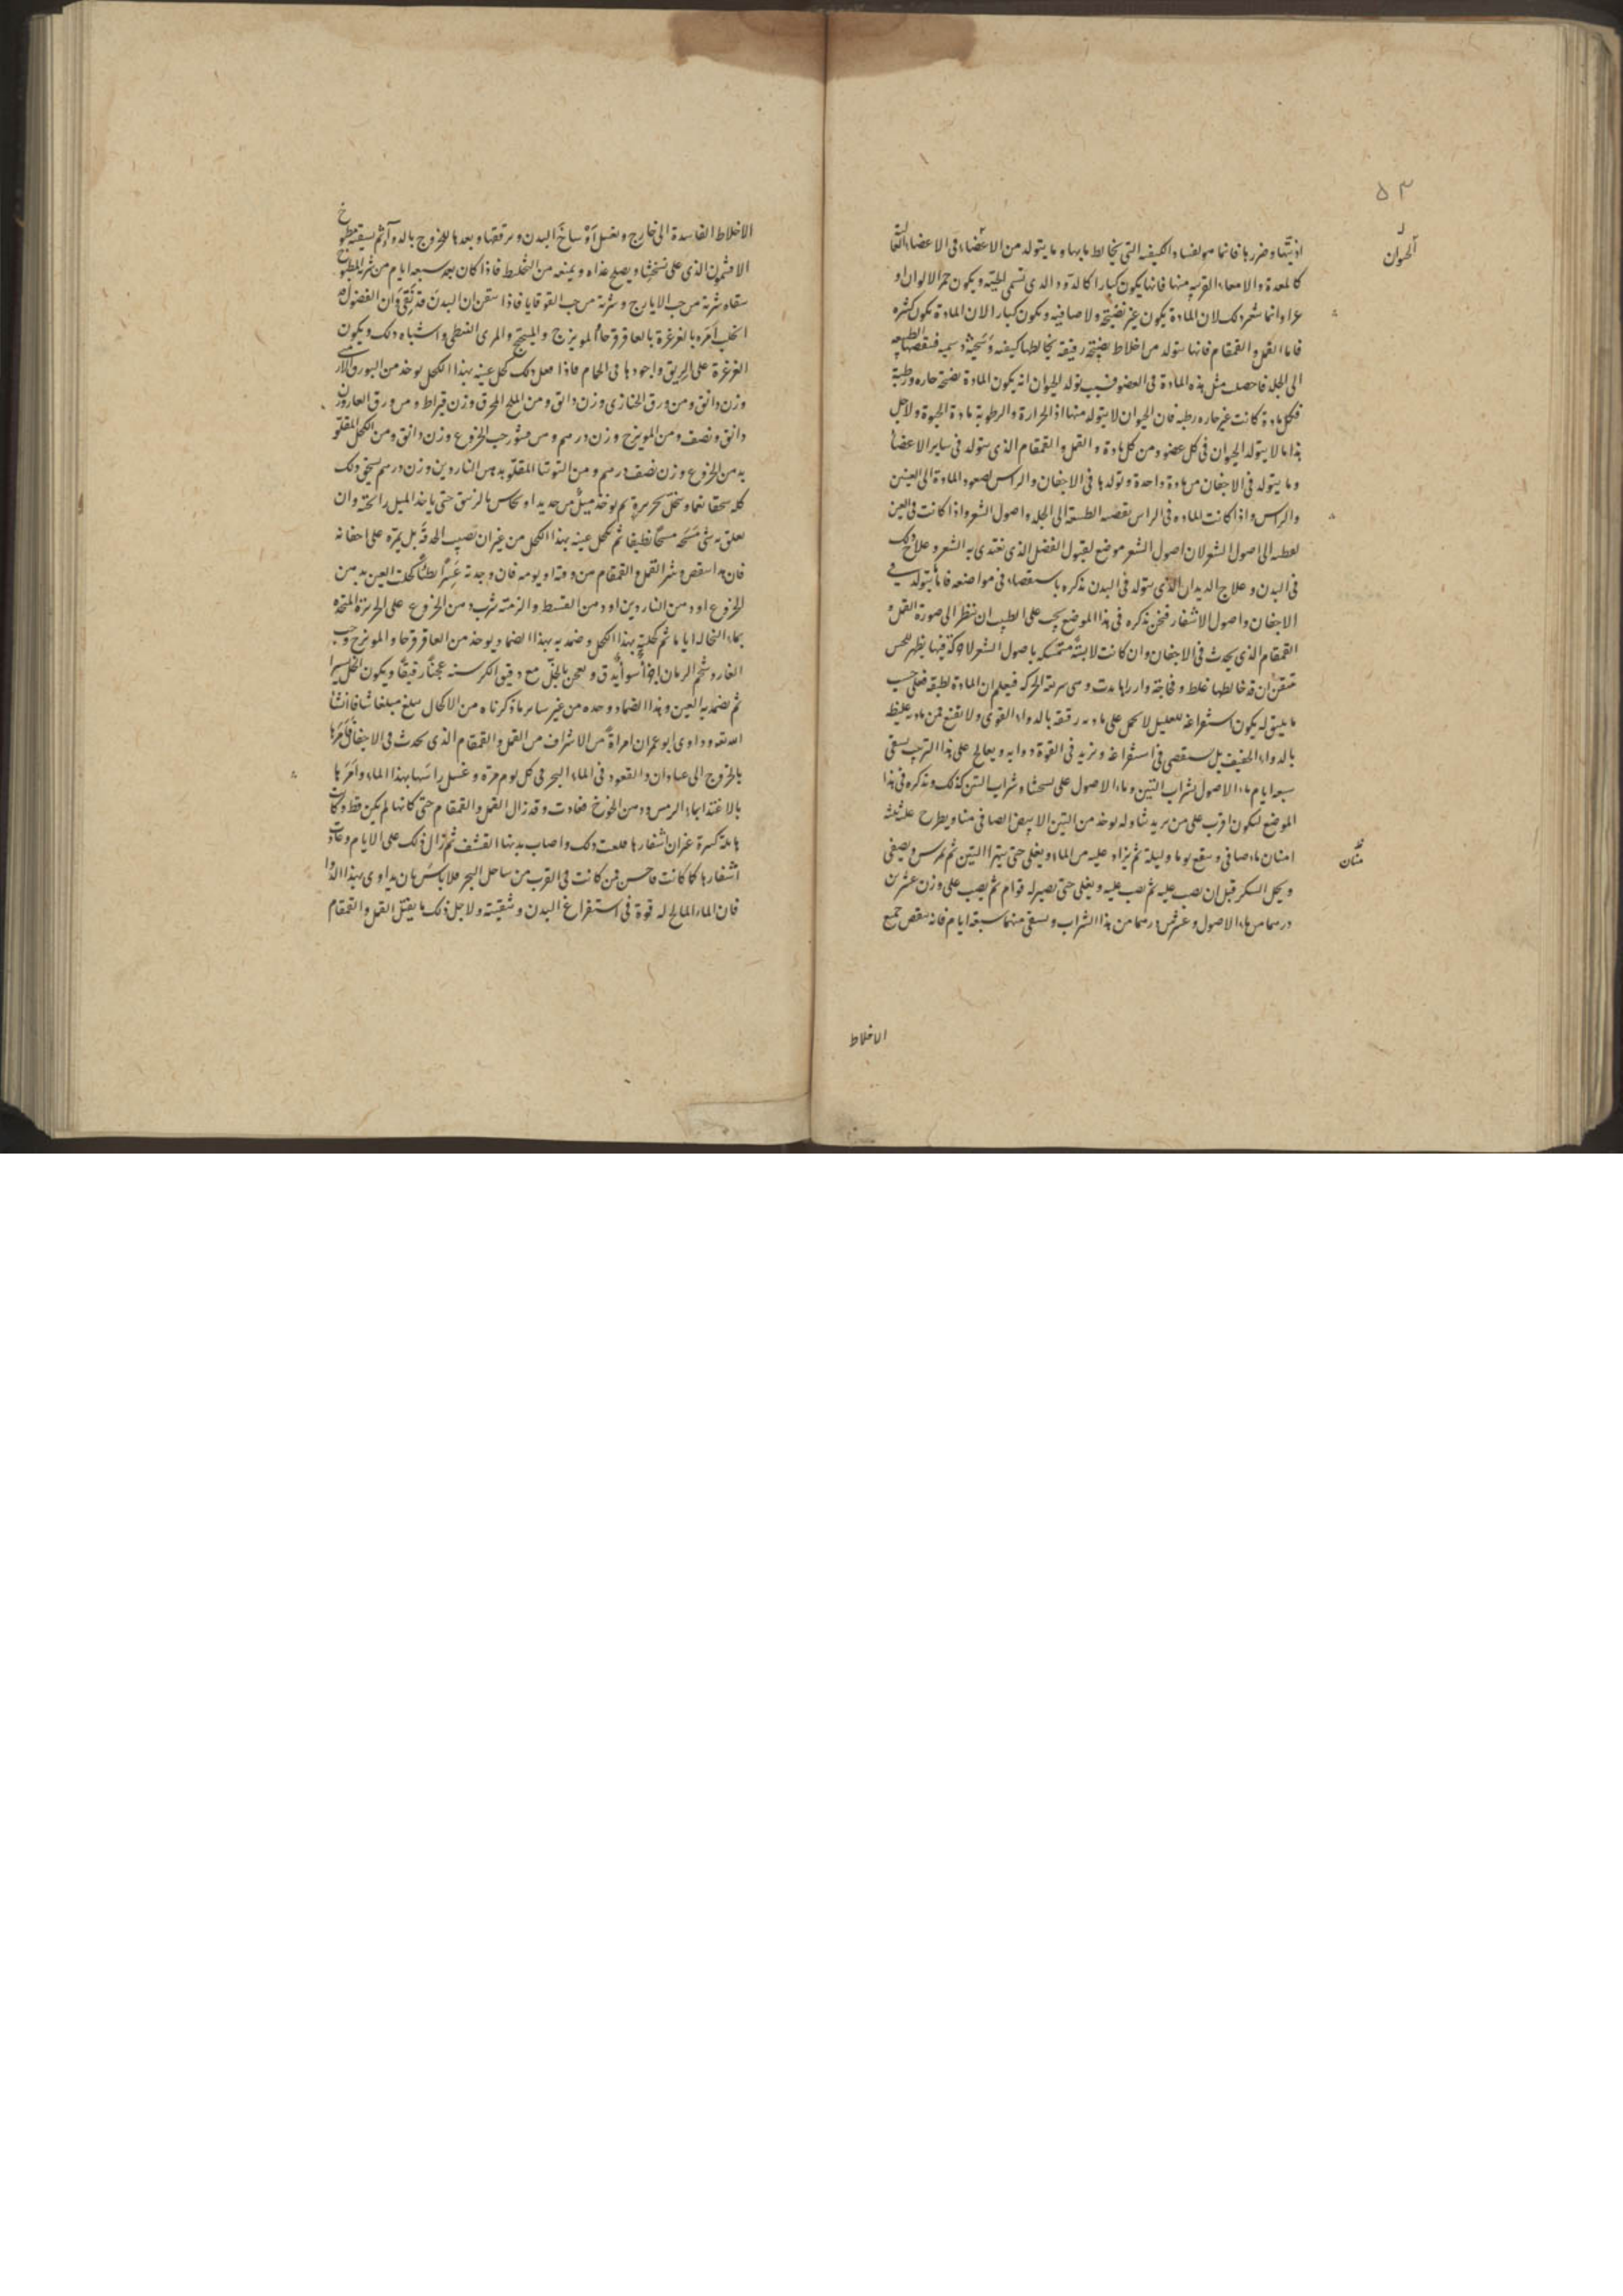 ٥٣
الحيوان
اذيتها وضررها فانما هو لفساد الكيفية التي يخالطها بها وما يتولد من الاعضاء في الاعضاء
كالمعدة والامعاء القريبة منها فانها يكون كبارا كالدود الذي تسمى الحية ويكون حمر الالوان او
وانما لان المادة يكون غير نضيجة ولا صافية ويكون كبارا لان المادة يكون كثيرة
فاما القمل والقمقام فانها يتولد من اخلاط نضيجة رقيقة يخالطها كيفية
الى الجلد فاحصلت مثل هذه المادة في العضو تولد الحيوان انه يكون المادة نضيجة حارة رطبة
فكل مادة كانت غير حارة رطبة فان الحيوان لا يتولد منها اذ الحرارة والرطوبة مادة الحيوة ولاجل
هذا ما لا يتولد الحيوان في كل عضو ومن كل مادة والقمل والقمقام الذي يتولد في ساير الاعضاء
وما يتولد في الاجفان من مادة واحدة وتولدها في الاجفان والراس لصعود المادة الى العينين
والراس واذا كانت المادة في الراس الطبيعة الى الجلد واصول الشعر واذا كانت في العين
الى اصول الشعر لان اصول الشعر موضع لقبول الفضل الذي تغتذي به الشعر وعلاج ذلك
في البدن وعلاج الديدان الذي يتولد في البدن نذكره باستقصاء في مواضعه فاما يتولد في
الاجفان واصول الاشفار فنحن نذكره في هذا الموضع يجب على الطبيب ان ينظر الى صورة القمل و
القمقام الذي يحدث في الاجفان وان كانت لابثة متمسكة باصول الشعر لا حركة فيها يظهر للحس
تيقن ان قد خالطها غلظ وفجاجة وان راها بدت وهي سريعة الحركة فيعلم ان المادة لطيفة فعلى حسب
ما يليق له يكون استفراغه للعليل لا يحمل على مادة رقيقة بالدواء القوي ولا يقنع في مادة غليظة
بالدواء الخفيف بل يستقصي في استفراغه ويزيد في القوة دوايه ويعالج على هذا الترتيب يسقى
سبعة ايام ماء الاصول بشراب التين وماء الاصول على نسختنا وشراب التين كذلك ونذكره في هذا
الموضع ليكون اقرب على من يريد يوخذ من التين الابيض الصافي منا ويطرح عليه ثلثة
امنان ماء صافي وينقع يوما وليلة ثم يزاد عليه من الماء ويغلى حتى يتهرا التين ثم يمرس ويصفى
منان
ويحل السكر قبل ان يصب عليه ثم يصب عليه ويغلى حتى يصير له قوام ثم يصب على وزن عشرين
درهما من ماء الاصول وعشرين درهما من هذا الشراب ويسقى منهما سبعة ايام فانه ينقص جميع
الاخلاط
الاخلاط الفاسدة الى خارج ويغسل اوساخ البدن ويرققها ويعدها للخروج بالدواء ثم يسقيه مطبوخ
الافتيمون الذي على نسختنا ويصلح غذاه ويمنعه من التخليط فاذا كان بعد سبعة ايام من شرب المطبوخ
سقاه شربة من حب الايارج وشربة من حب القوقايا فاذا تيقن ان البدن قد نقي وان الفضول
امره بالغرغرة بالعاقرقرحا والمويزج والميبختج والمري النبطي واشباه ذلك ويكون
الغرغرة على الريق واجودها في الحمام فاذا فعل ذلك كحل عينيه بهذا الكحل يوخذ من البورق الارمني
وزن دانق ومن ورق الخبازى وزن دانق ومن الملح المحرق وزن قيراط ومن ورق الغار وزن
دانق ونصف ومن المويزج وزن درهم ومن قشور حب الخروع وزن دانق ومن الكحل المقلو
بدهن الخروع وزن نصف درهم ومن التوتيا المقلو بدهن الناردين وزن درهم يسحق ذلك
كله سحقا ناعما وينخل بحريرة ثم يوخذ ميل من حديد او نحاس بالزيبق حتى ياخذ الميل رائحته وان
تعلق به شي مسحه مسحا نظيفا ثم يكحل عينه بهذا الكحل من غير ان يصيب الحدقة بل يمره على اجفانه
فان هذا ينقص وينثر القمل والقمقام من وقته او يومه فان وجدته عسرا بطيا كحلت العين بدهن
الخروع او دهن الناردين او دهن القسط والزمته شرب دهن الخروع على المتخذة
بماء النخالة اياما ثم كحلته بهذا الكحل وضمد به بهذا الضماد يوخذ من العاقرقرحا والمويزج وحب
الغار وشحم الرمان اجزاء سواء يدق ويعجن بالخل مع دقيق الكرسنه عجنا رقيقا ويكون الخل يسيرا
ثم يضمد به العين وهذا الضماد وحده من غير ساير ما ذكرناه من الاكحال مبلغ مبلغا شافا انشا
الله تعه وداوى ابو عمران امراة من الاشراف من القمل والقمقام الذي يحدث في الاجفان فامرها
بالخروج الى عبادان والقعود في الماء البحر في كل يوم مرة وغسل راسها بهذا الماء وامرها
بالاغتذا بماء الترمس ودهن الخوخ فعادت وقد زال القمل والقمقام حتى كانها لم يكن قط وكانت
غير ان اشفارها ذلك واصاب بدنها القشف ثم زال ذلك على الايام وعادت
اشفارها كما كانت واحسن فمن كانت في القرب من ساحل البحر فلا باس بان يداوى بهذا الدوا
فان الماء المالح له قوة في استفراغ البدن وتنقيته ولاجل ذلك ما يقتل القمل والقمقام